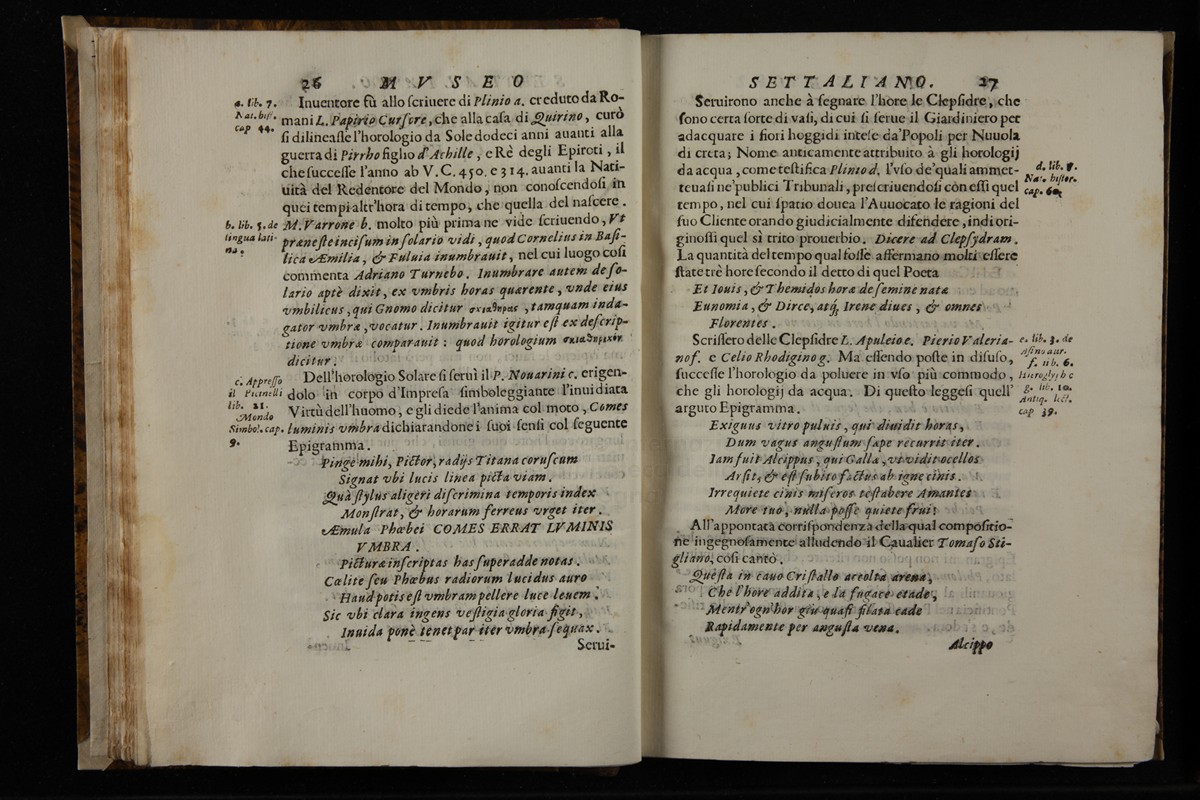 26 MVSEO
a. lib. 7.
Nat. hist.
cap 44.
Inuentore fù allo scriuere di Plinio a. creduto da Ro-
mani L. Papirio Cursore, che alla casa di Quirino, curò
si dilineasse l'horologio da Sole dodeci anni auanti alla
guerra di Pirrho figlio d'Achille, e Rè degli Epiroti, il
che successe l'anno ab V. C. 450. e 314. auanti la Nati-
uità del Redentore del Mondo, non conoscendosi in
quei tempi altr'hora di tempo, che quella del nascere.
b. lib. 5. de
lingua lati-
na.
M. Varrone b. molto più prima ne vide scriuendo, Vt
præneste incisum in solario vidi, quod Cornelius in Basi-
lica Æmilia, & Fuluia inumbrauit, nel cui luogo così
commenta Adriano Turnebo. Inumbrare autem de so-
lario aptè dixit, ex vmbris horas quarente, vnde eius
vmbilicus, qui Gnomo dicitur σκιαθηρας, tamquam inda-
gator vmbræ, vocatur. Inumbrauit igitur est ex descrip-
tione vmbræ comparauit: quod horologium σκιαθηρικὸν
dicitur.
c. Appresso
il Picinelli
lib. 21.
Mondo
Simbol. cap.
9.
Dell'horologio Solare si seruì il P. Nouarini c. erigen-
dolo in corpo d'Impresa simboleggiante l'inuidiata
Virtù dell'huomo, e gli diede l'anima col moto, Comes
luminis vmbra dichiarandone i suoi sensi col seguente
Epigramma.
Pinge mihi, Pictor, radijs Titana coruscum
Signat vbi lucis linea picta viam.
Quà stylus aligeri discrimina temporis index
Monstrat, & horarum ferreus vrget iter.
Æmula Phœbei COMES ERRAT LVMINIS
VMBRA.
Picturæ inscriptas has superadde notas.
Cœlite seu Phœbus radiorum lucidus auro
Haud potis est vmbram pellere luce leuem.
Sic vbi clara ingens vestigia gloria figit,
Inuida ponè tenet par iter vmbra sequax.
Serui-
SETTALIANO. 27
Seruirono anche à segnare l'hore le Clepsidre, che
sono certa sorte di vasi, di cui si serue il Giardiniero per
adacquare i fiori hoggidì intese da'Popoli per Nuuola
di creta; Nome anticamente attribuito à gli horologij
da acqua, come testifica Plinio d. l'vso de'quali ammet-
teuasi ne'publici Tribunali, prescriuendosi con essi quel
tempo, nel cui spatio douea l'Auuocato le ragioni del
suo Cliente orando giudicialmente difendere, indi ori-
ginossi quel sì trito prouerbio. Dicere ad Clepsydram.
La quantità del tempo qual fosse affermano molti essere
state trè hore secondo il detto di quel Poeta
d. lib. 7.
Nat. histor.
cap. 60.
Et Iouis, & Themidos horæ de semine natæ
Eunomia, & Dirce, atq; Irene diues, & omnes
Florentes.
Scrissero delle Clepsidre L. Apuleio e. Pierio Valeria-
no f. e Celio Rhodigino g. Ma essendo poste in disuso,
successe l'horologio da poluere in vso più commodo,
che gli horologij da acqua. Di questo leggesi quell'
arguto Epigramma.
e. lib. 3. de
asino aur.
f. lib. 6.
hieroglybc
g. lib. 10.
Antiq. lect.
cap 39.
Exiguus vitro puluis, qui diuidit horas,
Dum vagus angustum sæpe recurrit iter.
Iam fuit Alcippus, qui Galla, vt vidit ocellos
Arsit, & est subito factus ab igne cinis.
Irrequiete cinis miseros testabere Amantes
More tuo, nulla posse quiete frui!
All'appontata corrispondenza della qual compositio-
ne ingegnosamente alludendo il Caualier Tomaso Sti-
gliano, così cantò.
Questa in cauo Cristallo accolta arena,
Che l'hore addita, e la fugace etade,
Mentr'ogn'hor giu quasi filata cade
Rapidamente per angusta vena.
Alcippo